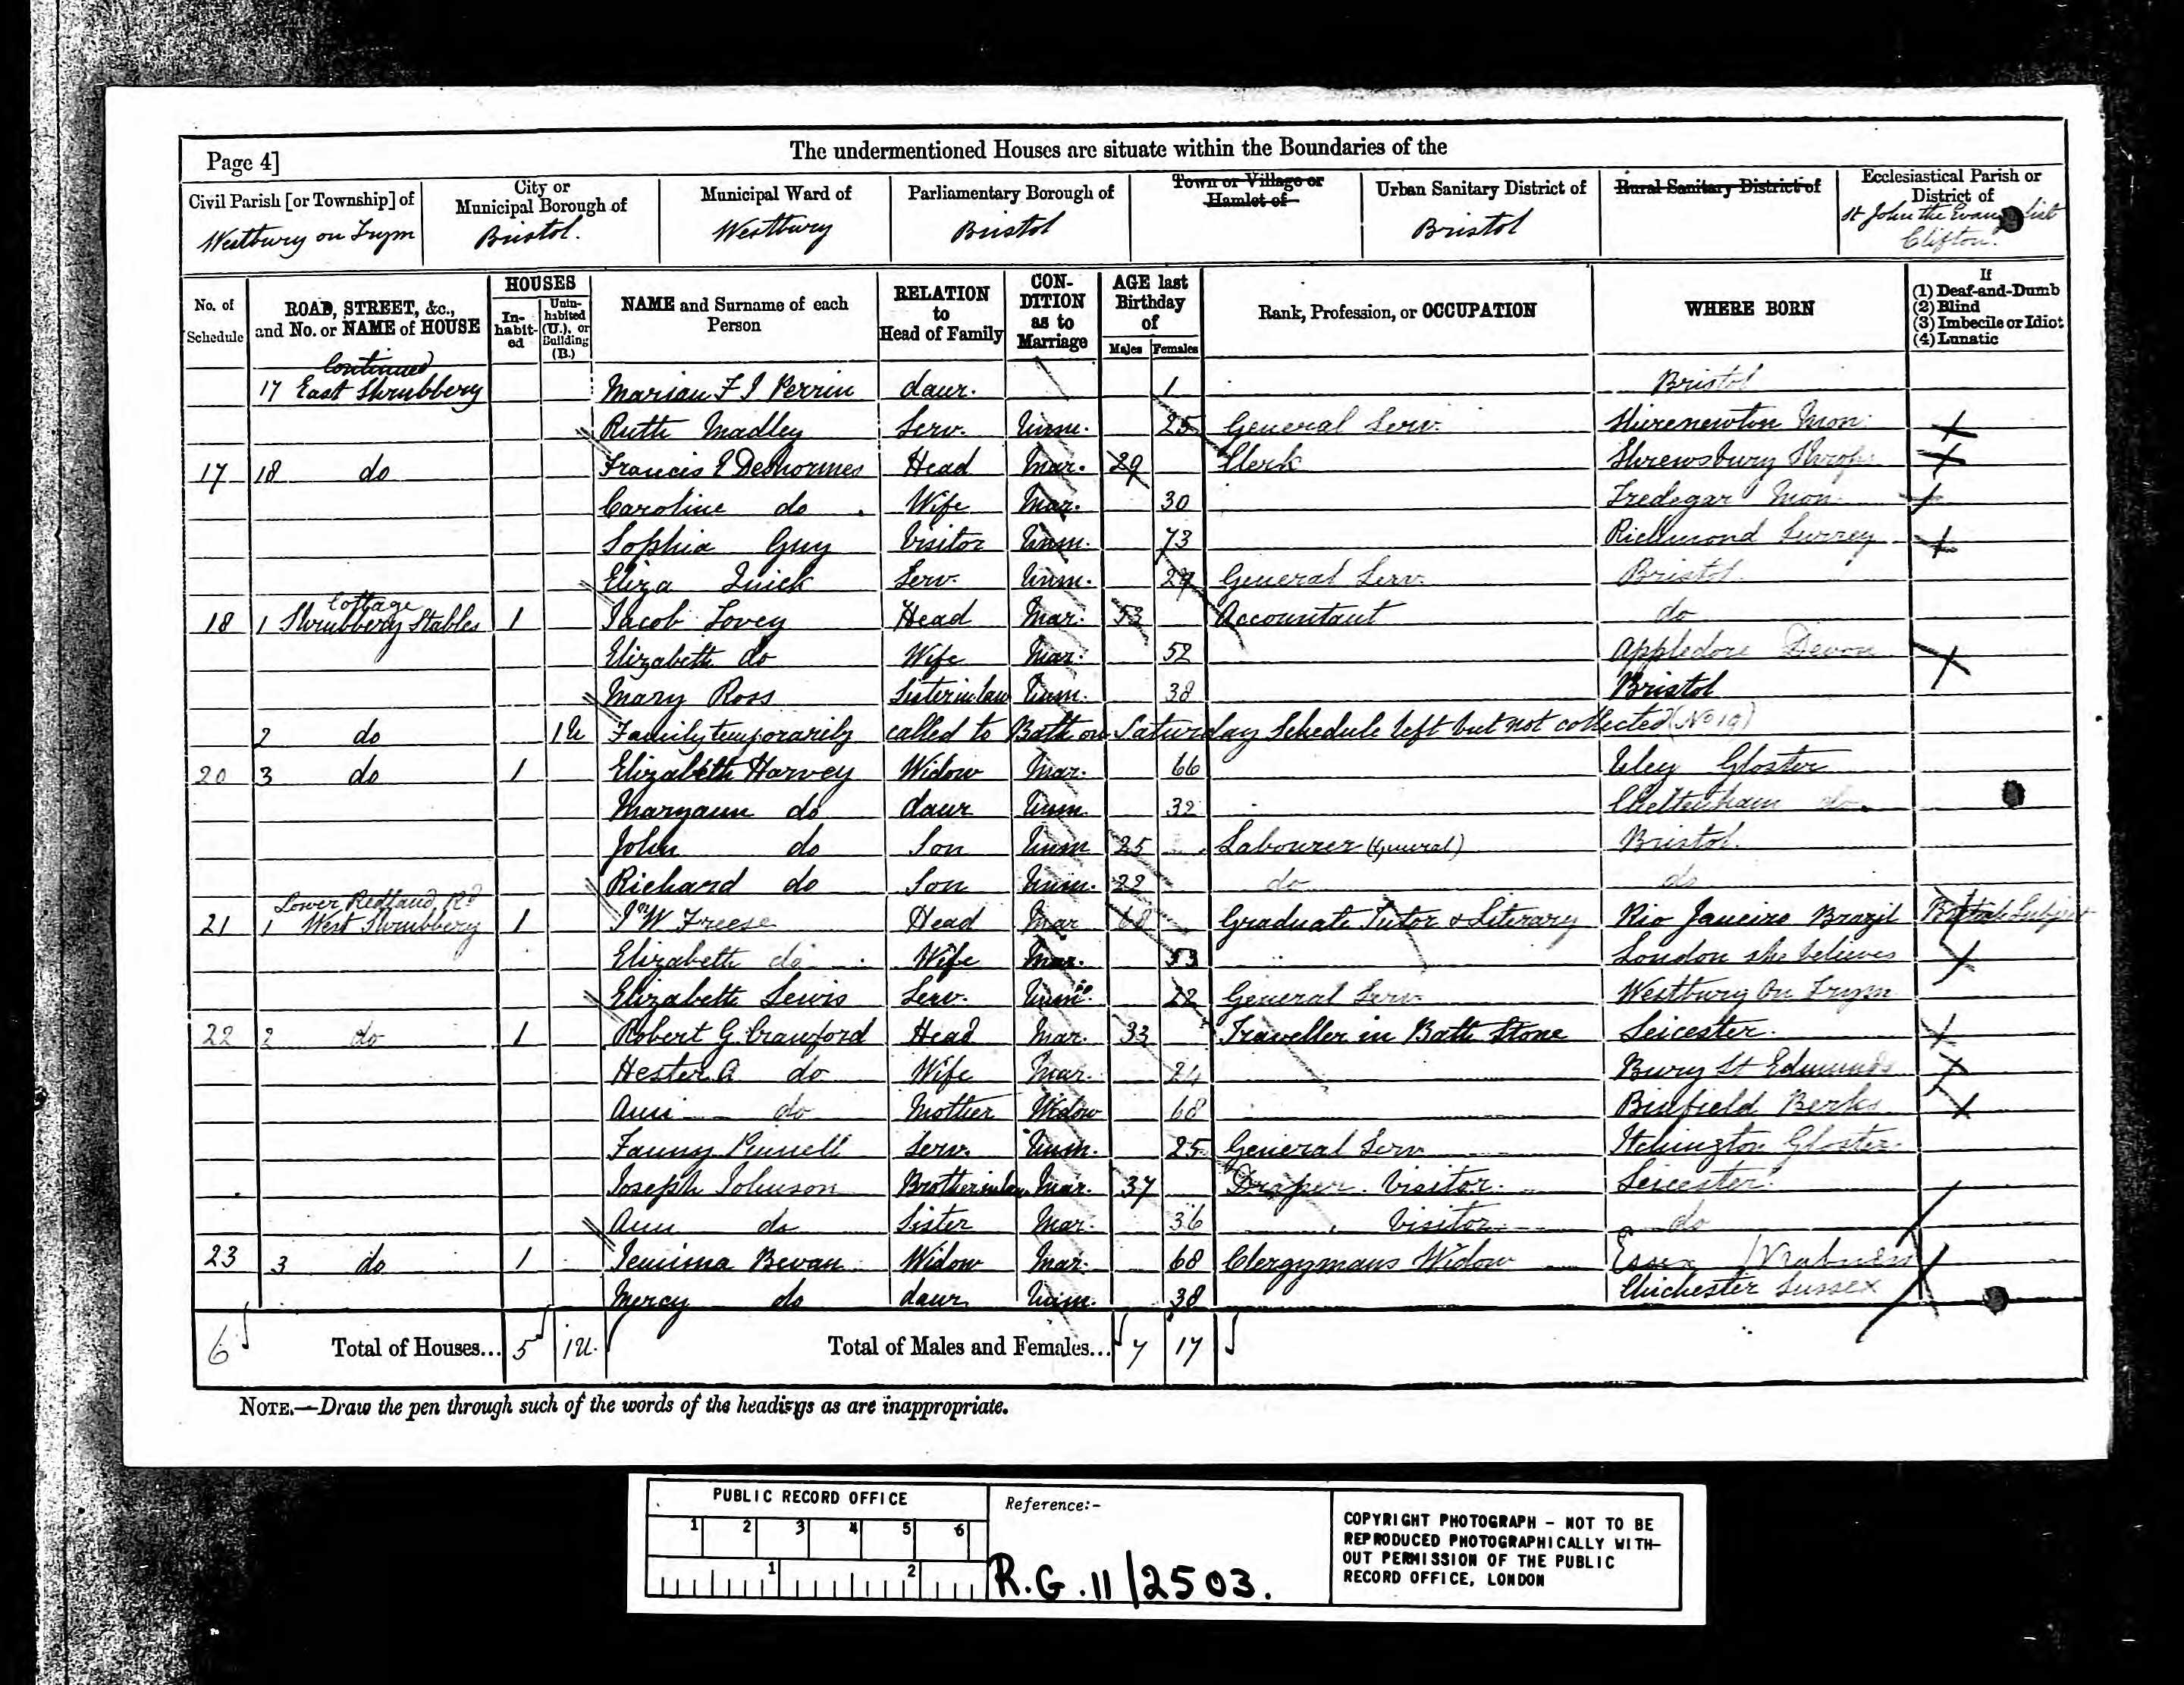 Page 4]
The undermentioned Houses are situate within the Boundaries of the
Civil Parish [or Township] of
Westbury on Trym
City or Municipal Borough of
Bristol.
Municipal Ward of
Westbury
Parliamentary Borough of
Bristol
Town or Village or Hamlet of
Urban Sanitary District of
Bristol
Rural Sanitary District of
Ecclesiastical Parish or District of
St John the Evangelist
Clifton.
No. of Schedule
ROAD, STREET, &c., and No. or NAME of HOUSE
HOUSES
Inhabited
Uninhabited (U.), or Building (B.)
NAME and Surname of each Person
RELATION to Head of Family
CONDITION as to Marriage
AGE last Birthday of
Males Females
Rank, Profession, or OCCUPATION
WHERE BORN
If
(1) Deaf-and-Dumb
(2) Blind
(3) Imbecile or Idiot
(4) Lunatic
Continued
17 East Shrubbery Marian F J Perrin daur. 1 Bristol
Ruth Madley Serv. Unm. 25 General Serv. Shirenewton Mon
17 18 do Francis Deshormes Head Mar. 29 Clerk Shrewsbury Shrops
Caroline do Wife Mar. 30 Tredegar Mon
Sophia Guy Visitor Unm. 73 Richmond Surrey
Eliza Quick Serv. Unm. General Serv. Bristol
Cottage
18 1 Shrubbery Stables 1 Jacob Lovey Head Mar. 53 Accountant do
Elizabeth do Wife Mar. 52 Appledore Devon
Mary Ross Sister in law Unm. 38 Bristol
2 do 1 U Family temporarily called to Bath on Saturday Schedule left but not collected (No 19)
20 3 do 1 Elizabeth Harvey Widow Mar. 66 Uley Gloster
Maryann do daur Unm 32 Cheltenham do
John do Son Unm 25 Labourer (General) Bristol.
Richard do Son Unm. 22 do do
Lower Redland Rd
21 1 West Shrubbery 1 Jn W Freese Head Mar 68 Graduate Tutor & Literary Rio Janeiro Brazil British Subject
Elizabeth do Wife Mar. 53 London she believes
Elizabeth Lewis Serv. Unm. 22 General Serv. Westbury On Trym
22 2 do 1 Robert G. Crawford Head Mar. 33 Traveller in Bath Stone Leicester.
Hester A do Wife Mar. 24 Bury St Edmunds
Ann do Mother Widow 68 Binfield Berks
Fanny Punnell Serv. Unm. 25 General Serv Itchington Gloster
Joseph Johnson Brother in law Mar. 37 Draper. Visitor. Leicester.
Ann do Sister Mar. 36 Visitor do
23 3 do 1 Jemima Bevan Widow Mar. 68 Clergymans Widow Essex Wrabness
Mercy do daur Unm. 38 Chichester Sussex
6 Total of Houses... 5 1U. Total of Males and Females... 7 17
NOTE.—Draw the pen through such of the words of the headings as are inappropriate.
PUBLIC RECORD OFFICE
1 2 3 4 5 6
1 2
Reference:-
R.G. 11/2503.
COPYRIGHT PHOTOGRAPH - NOT TO BE
REPRODUCED PHOTOGRAPHICALLY WITH-
OUT PERMISSION OF THE PUBLIC
RECORD OFFICE, LONDON